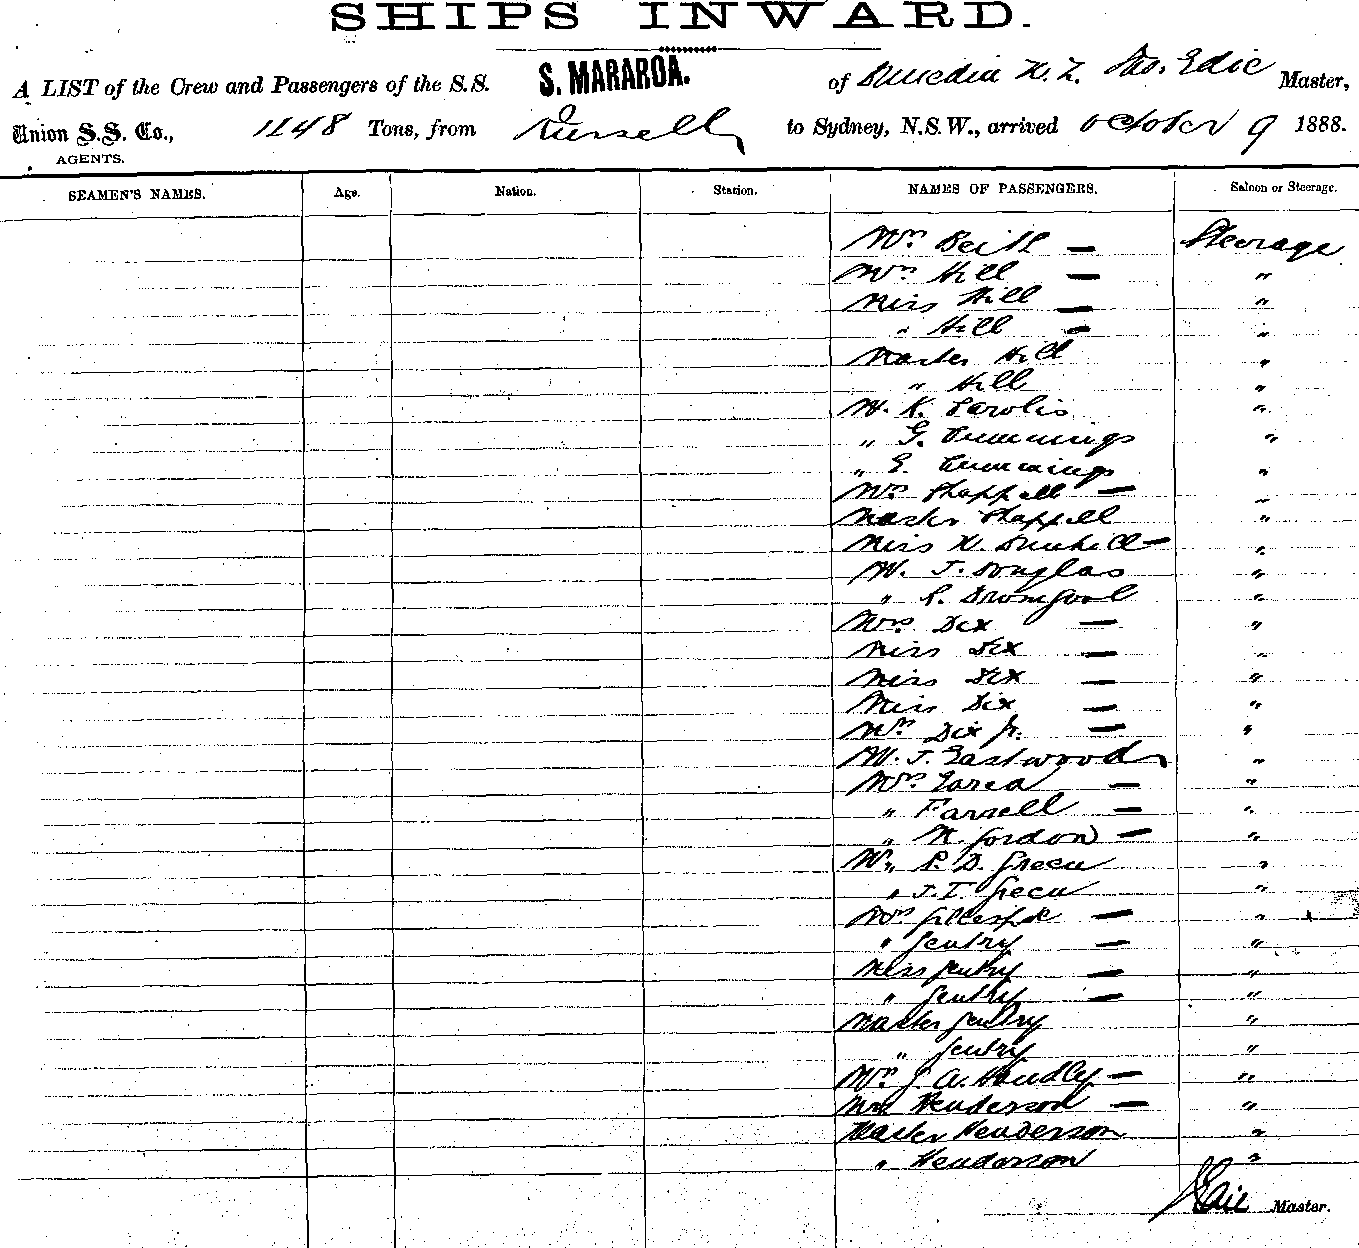 SHIPS INWARD.
A LIST of the Crew and Passengers of the S.S. S. MARAROA. of Dunedin N.Z. Jas. Edie Master,
Union S.S. Co., 1148 Tons, from Russell to Sydney, N.S.W., arrived October 9 1888.
AGENTS.
SEAMEN'S NAMES. Age. Nation. Station. NAMES OF PASSENGERS. Saloon or Steerage.
Mrs Beith — Steerage
Mrs Hill — "
Miss Hill — "
" Hill — "
Master Hill "
" Hill "
M. K. "
" G. Cummings "
" E. Cummings "
Mrs Chappell — "
Master Chappell "
Miss — "
M. J. Douglas "
" P. Dromgool "
Mrs Dix — "
Miss Dix — "
Miss Dix — "
Miss Dix — "
Mrs Dix Jr. — "
M. J. Eastwood "
Mrs — "
" Farrell — "
" Gordon — "
Mr. P. D. Green "
" J. T. Green "
Mrs Gillespie — "
" Gentry — "
Miss Gentry — "
" Gentry — "
Master Gentry "
" Gentry "
Mrs J. A. Handley — "
Mrs Henderson — "
Master Henderson "
" Henderson "
J Edie Master.